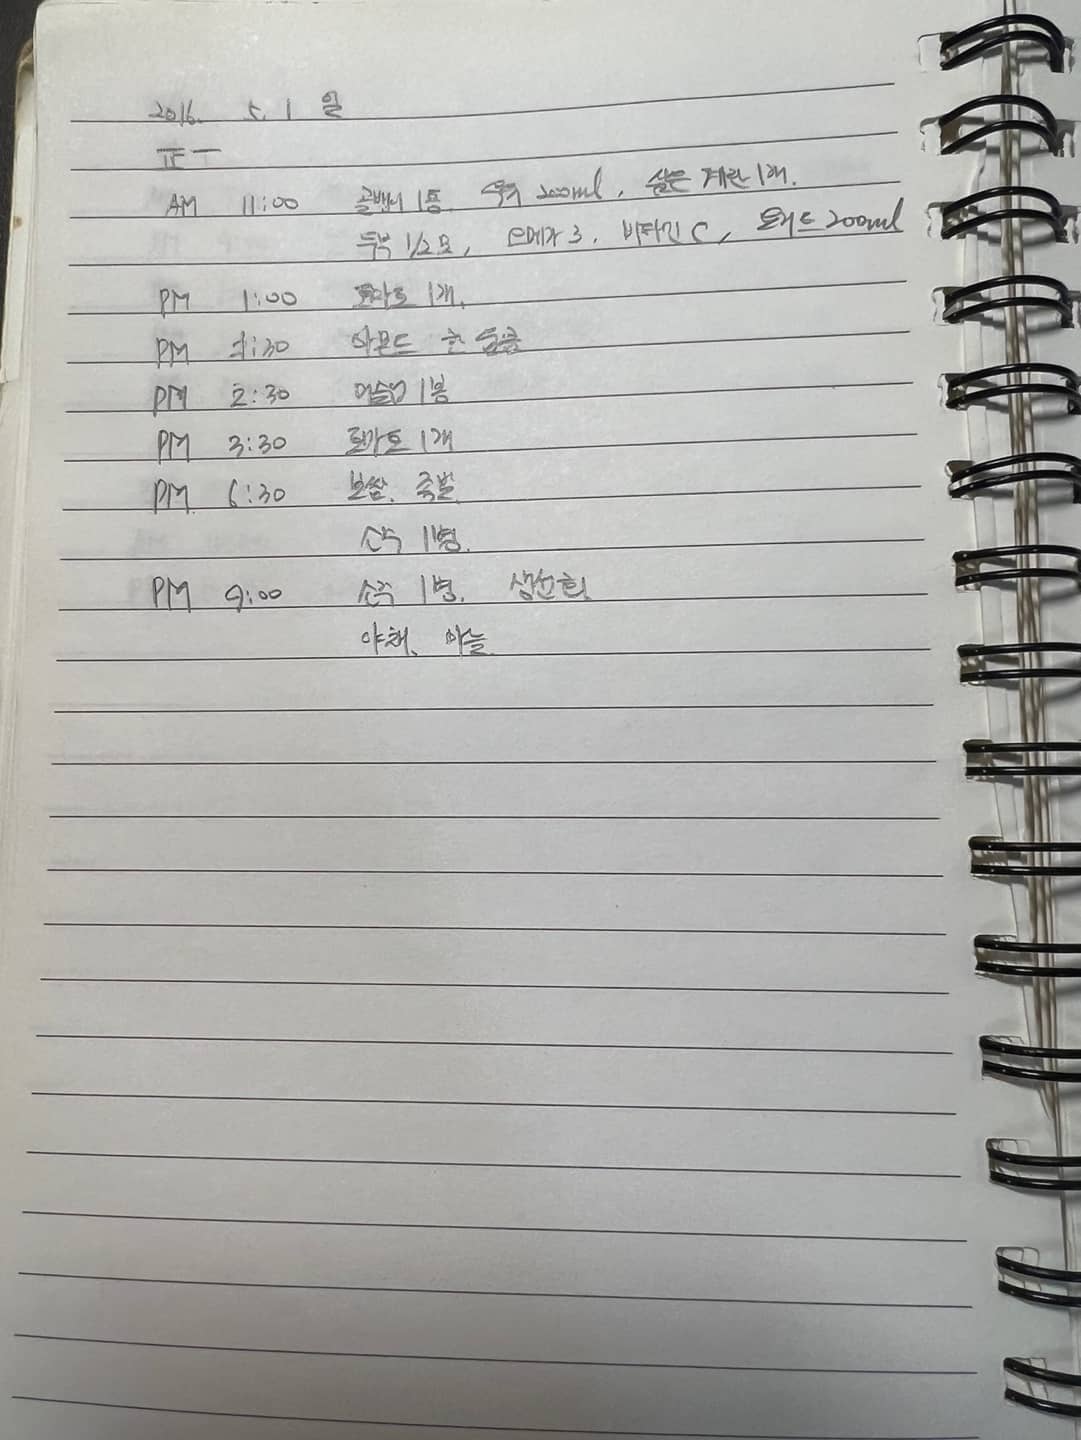 2016. 5. 1 일
正丅
AM 11:00 골뱅이 1통. 우유 200ml, 삶은 계란 1개.
두부 1/2모, 오메가 3, 비타민 C, 200ml
PM 1:00 토마토 1개.
PM 1:30 아몬드 한 움큼
PM 2:30 1봉
PM 3:30 토마토 1개
PM 6:30 보쌈. 족발.
소주 1병.
PM 9:00 소주 1병. 생선회
야채, 마늘.